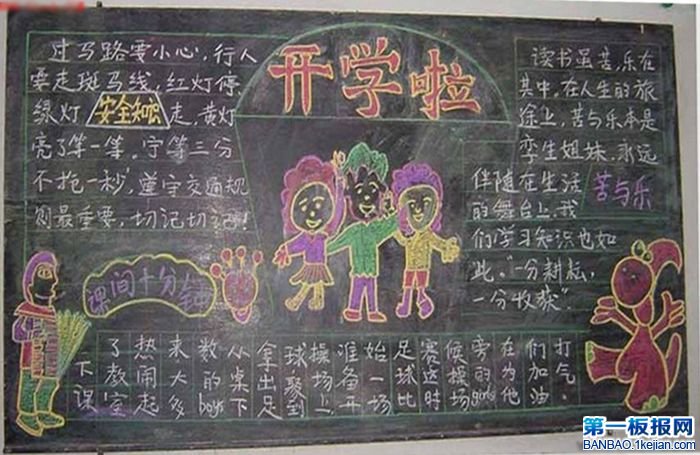 开学啦
过马路要小心,行人
要走斑马线,红灯停,
绿灯走,黄灯
安全知识
亮了等一等,宁等三分
不抢一秒,遵守交通规
则最重要,切记切记!
读书虽苦,乐在
其中,在人生的旅
途上,苦与乐本是
孪生姐妹,永远
伴随在生活
苦与乐
的舞台上,我
们学习知识也如
此,"一分耕耘,
一分收获".
课间十分钟
下课
了教室
热闹起
来大多
数的boys
从桌下
拿出足
球聚到
操场上
准备开
始一场
足球比
赛这时
候操场
旁的girls
在为他
们加油
打气。
第一板报网
BANBAO.1kejian.com